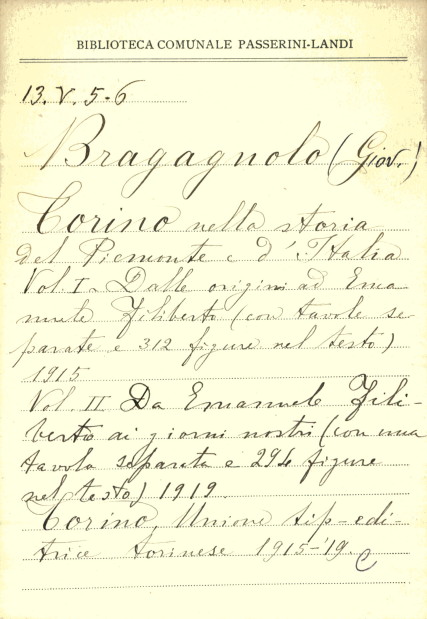 BIBLIOTECA COMUNALE PASSERINI-LANDI
13. V. 5-6
Bragagnolo (Giov.)
Torino nella storia
del Piemonte e d'Italia
Vol. I - Dalle origini ad Ema
nuele Filiberto (con tavole se
parate e 312 figure nel testo)
1915
Vol. II Da Emanuele Fili-
berto ai giorni nostri (con una
tavola separata e 294 figure
nel testo) 1919.
Torino, Unione tip-edi-
trice torinese 1915-'19.